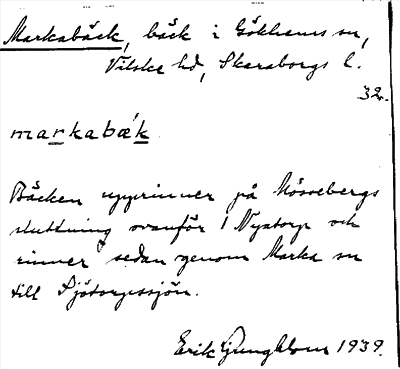 Markabäck, bäck i Gökhems sn,
Vilske hd, Skaraborgs l.
32.
markabæ´k
Bäcken upprinner på Mössebergs
sluttning ovanför Nyatorp och
rinner sedan genom Marka sn
till Sjötorpssjön.
Erik Ljungblom 1939.